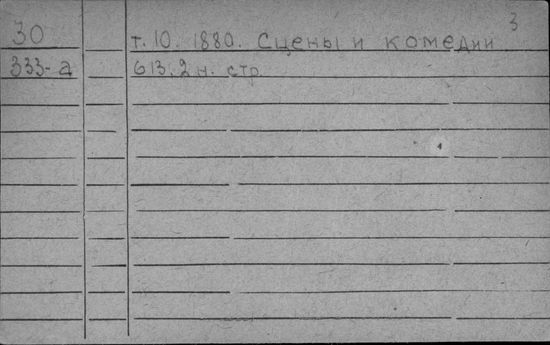 3
30 т. 10. 1880. Сцены и комедии
333-а 613. 2 н. стр.